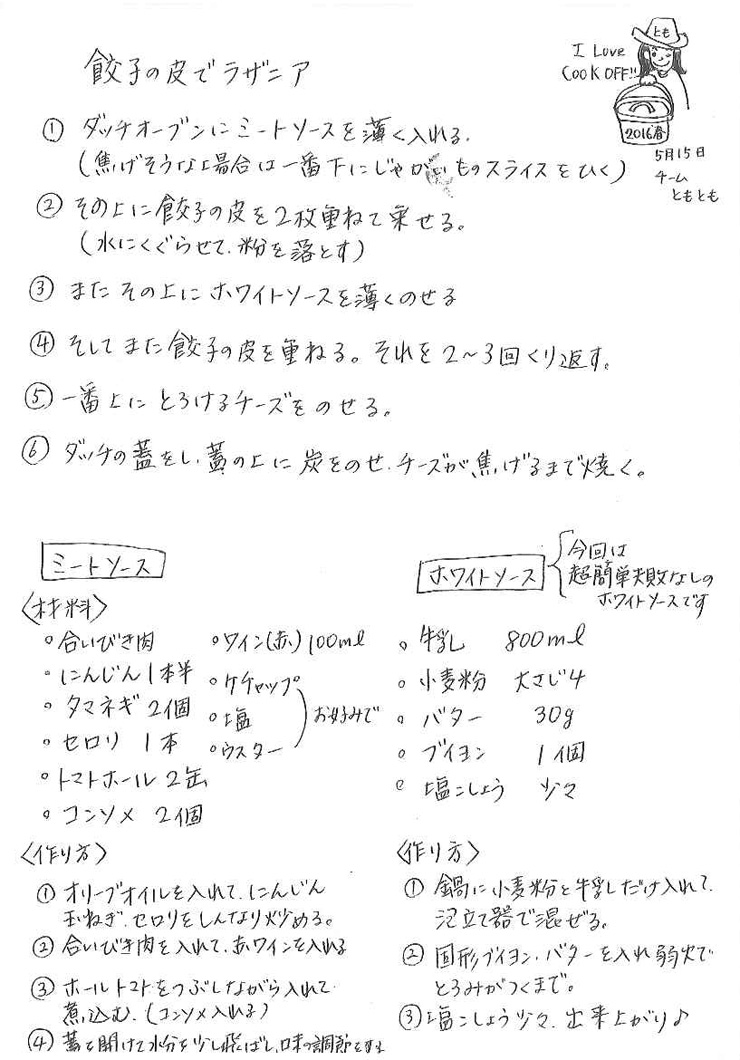 餃子の皮でラザニア
I Love
COOK OFF!!
とも
2016春
5月15日
チーム
ともとも
① ダッチオーブンにミートソースを薄く入れる.
(焦げそうな場合は一番下にじゃがいものスライスをひく)
② その上に餃子の皮を2枚重ねて乗せる。
(水にくぐらせて、粉を落とす)
③ またその上にホワイトソースを薄くのせる
④ そしてまた餃子の皮を重ねる。それを2〜3回くり返す。
⑤ 一番上にとろけるチーズをのせる。
⑥ ダッチの蓋をし、蓋の上に炭をのせ、チーズが焦げるまで焼く。
ミートソース
〈材料〉
・合いびき肉
・にんじん1本半
・タマネギ 2個
・セロリ 1本
・トマトホール 2缶
・コンソメ 2個
・ワイン(赤) 100ml
・ケチャップ
・塩
・ウスター
お好みで
〈作り方〉
① オリーブオイルを入れて、にんじん
玉ねぎ、セロリをしんなり炒める。
② 合いびき肉を入れて、赤ワインを入れる
③ ホールトマトをつぶしながら入れて
煮込む.(コンソメ入れる)
④ 蓋を開けて水分を少し飛ばし、味の調節をする
ホワイトソース
今回は
超簡単失敗なしの
ホワイトソースです
・牛乳 800ml
・小麦粉 大さじ4
・バター 30g
・ブイヨン 1個
・塩こしょう 少々
〈作り方〉
① 鍋に小麦粉と牛乳だけ入れて、
泡立て器で混ぜる。
② 固形ブイヨン・バターを入れ弱火で
とろみがつくまで。
③ 塩こしょう少々、出来上がり♪